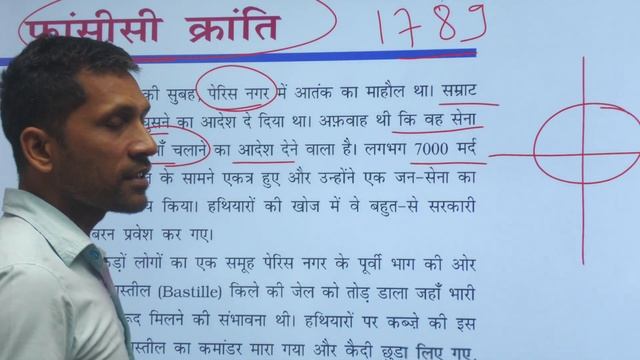 फ्रांसीसी क्रांति 1789
की सुबह, पेरिस नगर में आतंक का माहौल था। सम्राट
घुसने का आदेश दे दिया था। अफ़वाह थी कि वह सेना
चलाने का आदेश देने वाला है। लगभग 7000 मर्द
के सामने एकत्र हुए और उन्होंने एक जन-सेना का
किया। हथियारों की खोज में वे बहुत-से सरकारी
बरन प्रवेश कर गए।
ड़ों लोगों का एक समूह पेरिस नगर के पूर्वी भाग की ओर
स्तील (Bastille) किले की जेल को तोड़ डाला जहाँ भारी
रूद मिलने की संभावना थी। हथियारों पर कब्ज़े की इस
स्तील का कमांडर मारा गया और कैदी छुड़ा लिए गए,